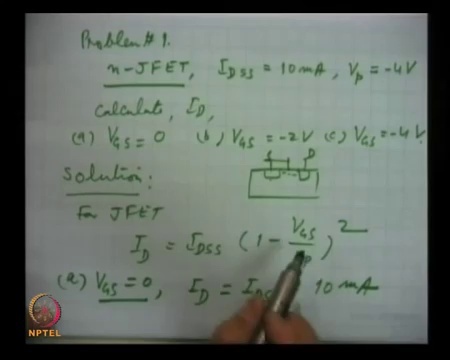 Problem # 1.
n-JFET, I_DSS = 10 mA, V_p = -4V
Calculate, I_D,
(a) V_GS = 0 (b) V_GS = -2V (c) V_GS = -4V.
Solution:
S D
For JFET
I_D = I_DSS (1 - V_GS / )^2
(a) V_GS = 0, I_D = 10 mA
NPTEL